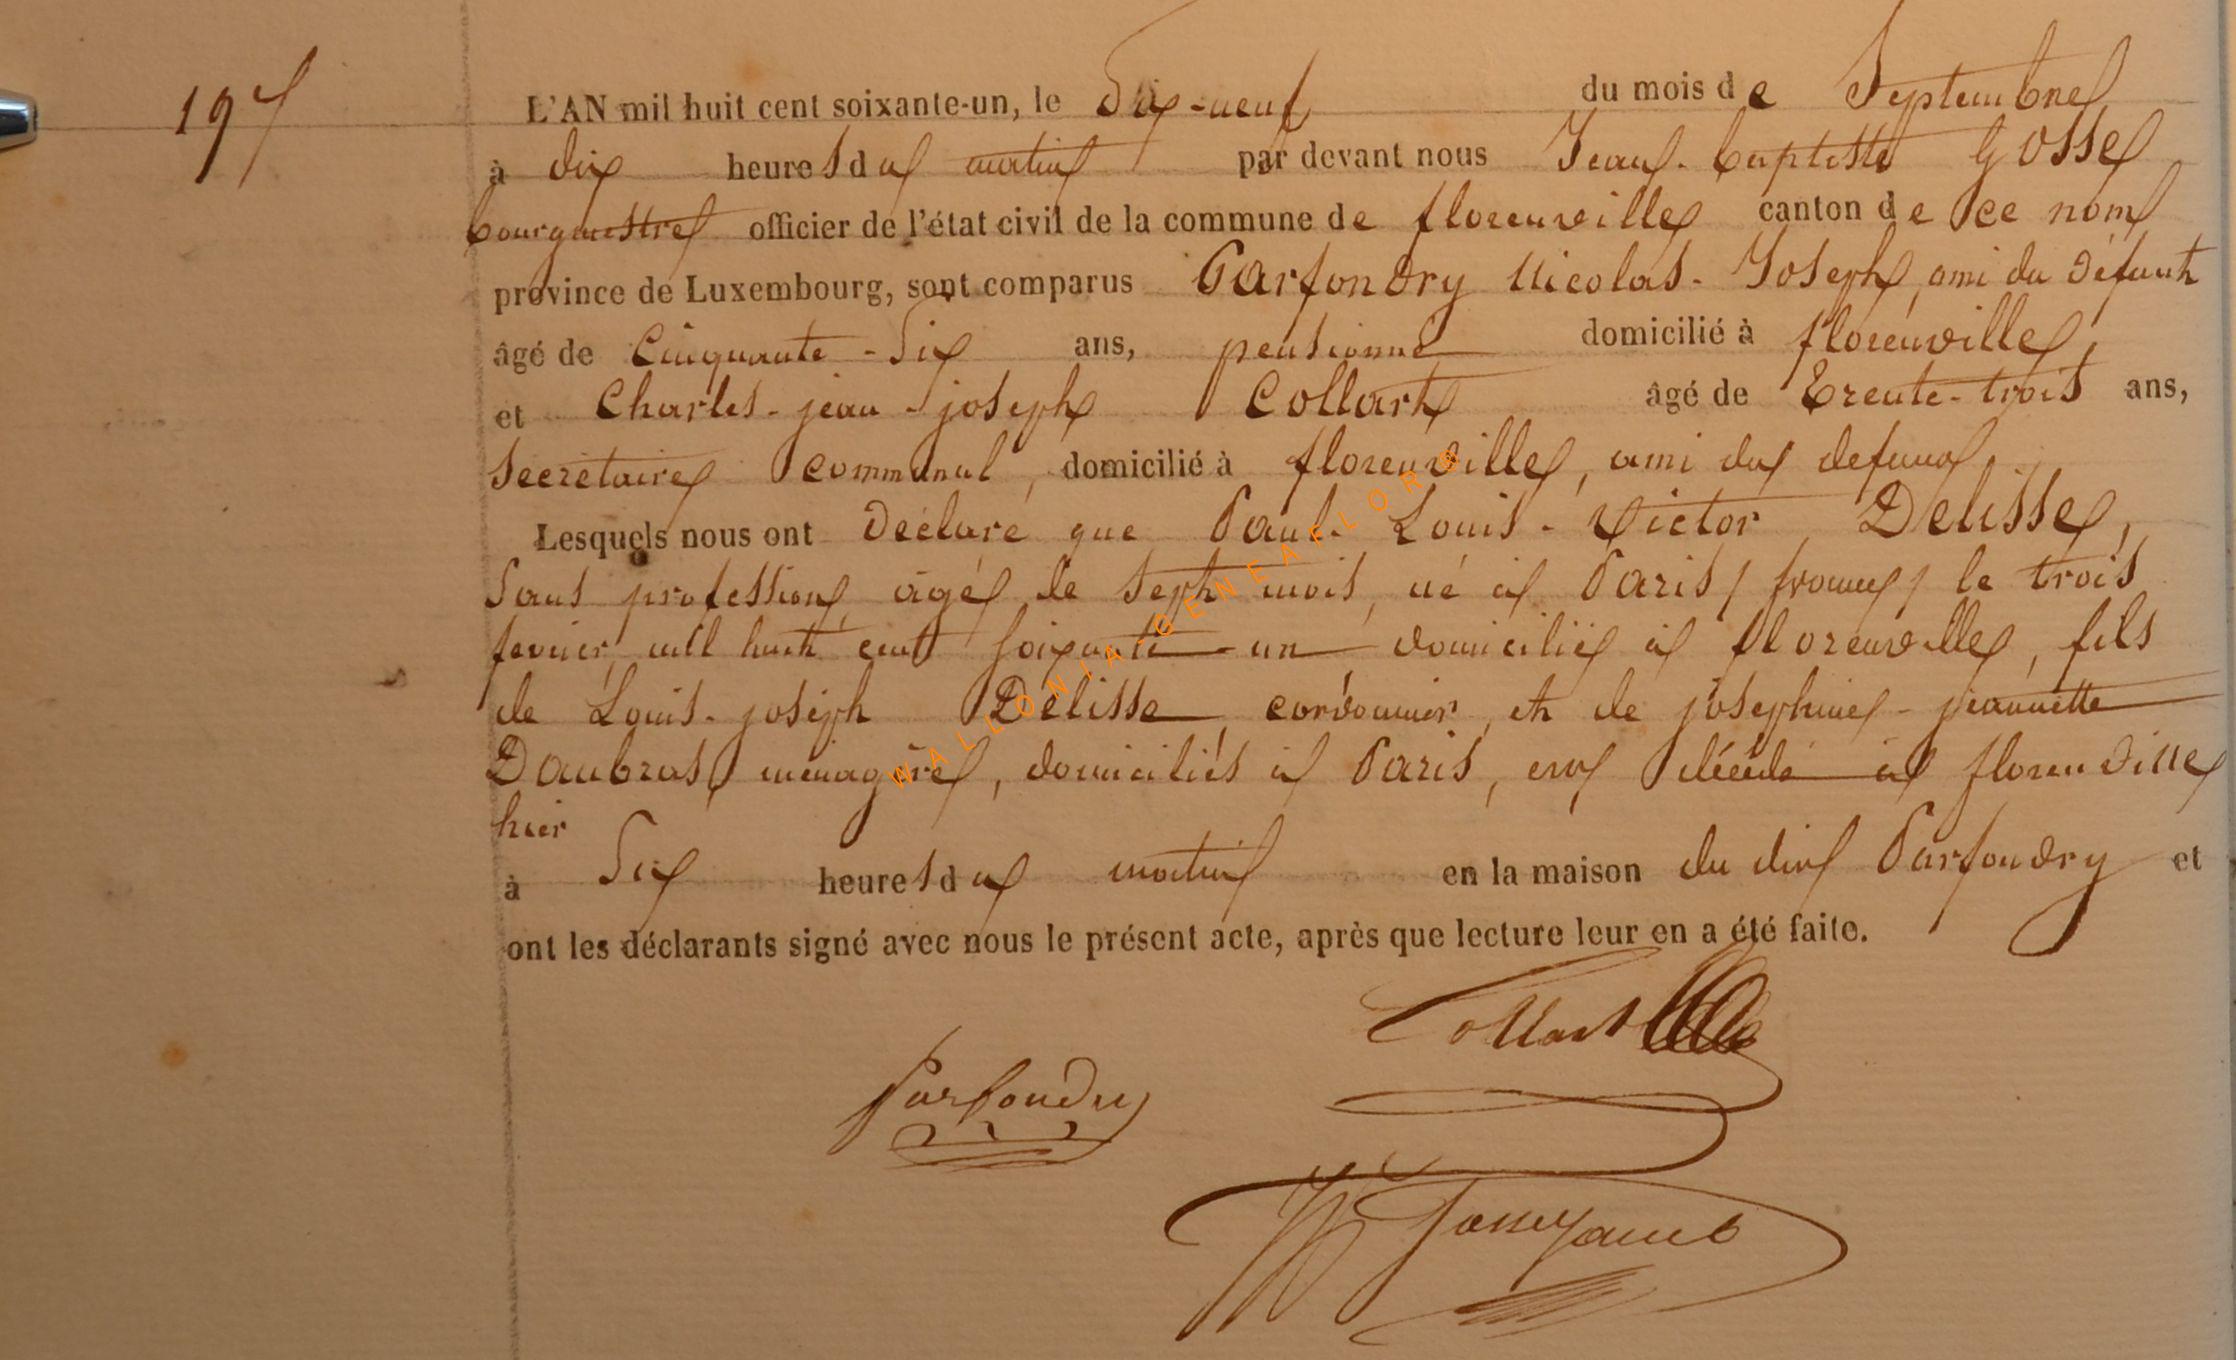 197
L'AN mil huit cent soixante-un, le Dix-neuf du mois de Septembre
à dix heures du matin par devant nous Jean-baptiste Gosse
bourgmestre officier de l'état civil de la commune de florenville canton de ce nom
province de Luxembourg, sont comparus Parfondry Nicolas-Joseph, ami du défunt
âgé de Cinquante-Six ans, pensionné domicilié à florenville
et Charles-jean-joseph Collart âgé de Trente-trois ans,
Secrétaire communal, domicilié à florenville, ami du defunt
Lesquels nous ont Déclaré que Paul-Louis-Victor Delisse,
Sans profession, agé de Sept mois, né à Paris / france / le trois
fevrier mil huit cent soixante-un domicilié à florenville, fils
de Louis-joseph Délisse cordonnier, et de joséphine-jeannette
Daubras, ménagère, domiciliés à Paris, est décédé à florenville
hier
à Six heures du matin en la maison du dit Parfondry et
ont les déclarants signé avec nous le présent acte, après que lecture leur en a été faite.
Collart
Parfondry
WALLONIA-GENEAFLORE